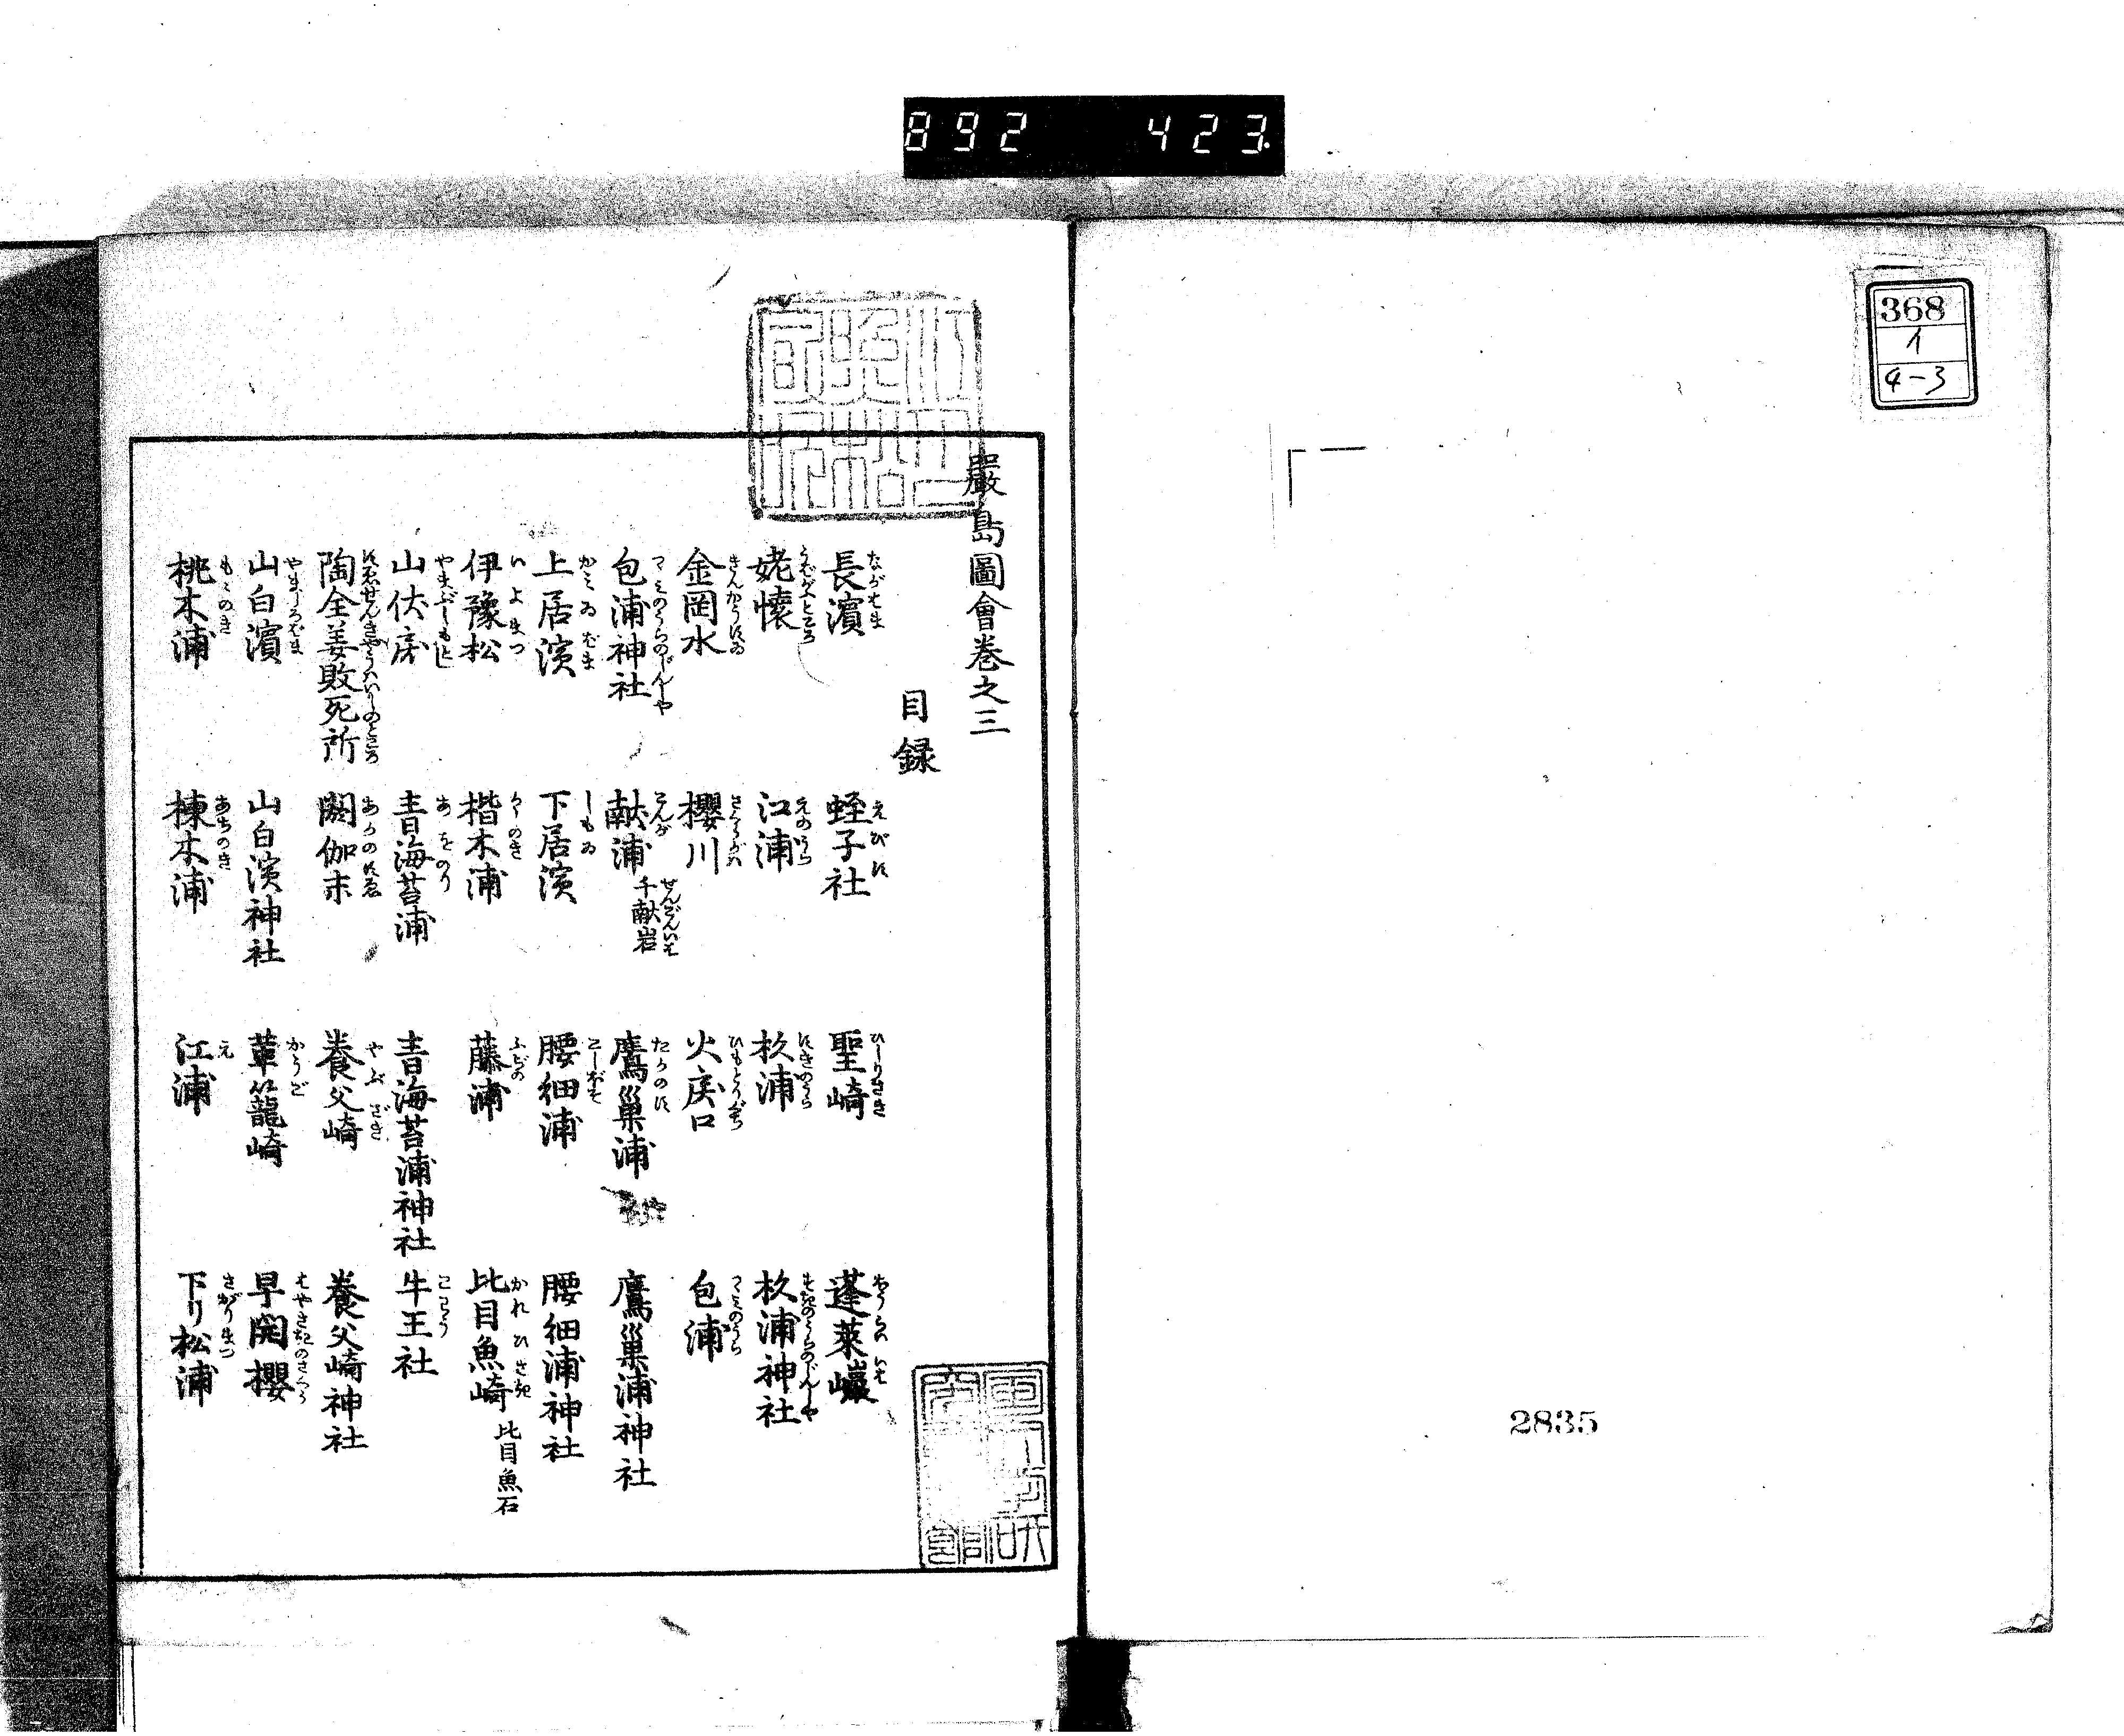 892 423
368
1
4-3
2835
嚴島圖會巻之三
目録
長濱 蛭子社 聖崎 蓬莱巖
姥懐 江浦 杦浦 杦浦神社
金岡水 櫻川 火戻口 包浦
包浦神社 献浦 千献岩 鷹巣浦 鷹巣浦神社
上居濱 下居濱 腰細浦 腰細浦神社
伊豫松 楷木浦 藤浦 比目魚崎 比目魚石
山伏床 青海苔浦 青海苔浦神社 牛王社
陶全姜敗死所 閼伽末 養父崎 養父崎神社
山白濱 山白濱神社 革籠崎 早開櫻
桃木浦 楝木浦 江浦 下り松浦